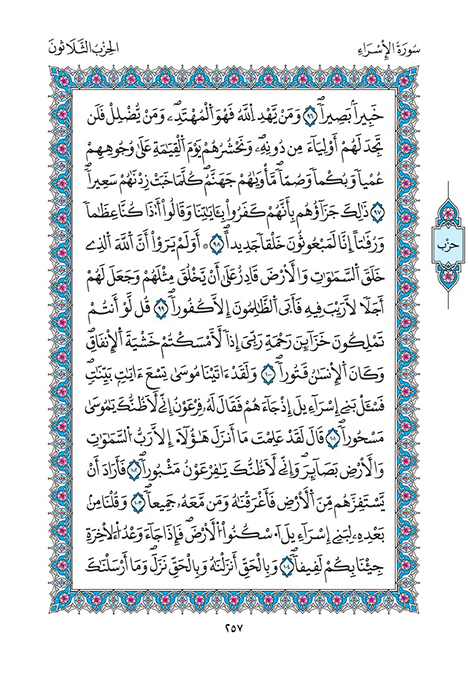 سُورَةُ الإِسْرَاءِ
الحِزْبُ الثَّلَاثُونَ
خَبِيراَۢ بَصِيراٗۖ ٩٦ وَمَنْ يَّهْدِ اِ۬للَّهُ فَهُوَ اَ۬لْمُهْتَدِۦۖ وَمَنْ يُّضْلِلْ فَلَن
تَجِدَ لَهُمُۥٓ أَوْلِيَآءَ مِن دُونِهِۦۖ وَنَحْشُرُهُمْ يَوْمَ اَ۬لْقِيَٰمَةِ عَلَىٰ وُجُوهِهِمْ
عُمْياٗ وَبُكْماٗ وَصُمّاٗۖ مَّأْوَيٰهُمْ جَهَنَّمُۖ كُلَّمَا خَبَتْ زِدْنَٰهُمْ سَعِيراٗۖ
٩٧ ذَٰلِكَ جَزَآؤُهُم بِأَنَّهُمْ كَفَرُواْ بِـَٔايَٰتِنَا وَقَالُوٓاْ أَٰ۟ذَا كُنَّا عِظَٰماٗ
وَرُفَٰتاً إِنَّا لَمَبْعُوثُونَ خَلْقاٗ جَدِيداٗۖ ٩٨ ۞ أَوَلَمْ يَرَوَاْ اَنَّ اَ۬للَّهَ اَ۬لذِے
خَلَقَ اَ۬لسَّمَٰوَٰتِ وَالَارْضَ قَادِرٌ عَلَىٰٓ أَنْ يَّخْلُقَ مِثْلَهُمْ وَجَعَلَ لَهُمُۥٓ
أَجَلاٗ لَّا رَيْبَ فِيهِ فَأَبَى اَ۬لظَّٰلِمُونَ إِلَّا كُفُوراٗۖ ٩٩ قُل لَّوَ اَنتُمْ
تَمْلِكُونَ خَزَآئِنَ رَحْمَةِ رَبِّيَ إِذاٗ لَّأَمْسَكْتُمْ خَشْيَةَ اَ۬لِانفَاقِۖ
وَكَانَ اَ۬لِانسَٰنُ قَتُوراٗۖ ١٠٠ وَلَقَدَ اٰتَيْنَا مُوسَىٰ تِسْعَ ءَايَٰتِۢ بَيِّنَٰتٖۖ
فَسْـَٔلْ بَنِےٓ إِسْرَآءِيلَ إِذْ جَآءَهُمْ فَقَالَ لَهُۥ فِرْعَوْنُ إِنِّے لَأَظُنُّكَ يَٰمُوسَىٰ
مَسْحُوراٗۖ ١٠١ قَالَ لَقَدْ عَلِمْتَ مَآ أَنزَلَ هَٰٓؤُلَآءِ اِلَّا رَبُّ اُ۬لسَّمَٰوَٰتِ
وَالَارْضِ بَصَآئِرَۖ وَإِنِّے لَأَظُنُّكَ يَٰفِرْعَوْنُ مَثْبُوراٗۖ ١٠٢ فَأَرَادَ أَنْ
يَّسْتَفِزَّهُم مِّنَ اَ۬لَارْضِ فَأَغْرَقْنَٰهُ وَمَن مَّعَهُۥ جَمِيعاٗۖ ١٠٣ وَقُلْنَا مِنۢ
بَعْدِهِۦ لِبَنِےٓ إِسْرَآءِيلَ اَ۟سْكُنُواْ اُ۬لَارْضَۖ فَإِذَا جَآءَ وَعْدُ اُ۬لَاخِرَةِ
جِئْنَا بِكُمْ لَفِيفاٗۖ ١٠٤ وَبِالْحَقِّ أَنزَلْنَٰهُ وَبِالْحَقِّ نَزَلَۖ وَمَآ أَرْسَلْنَٰكَ
حزب
٢٥٧